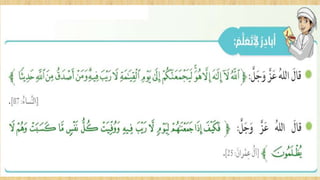 أُبادِرُ لِأَتَعَلَّمَ:
قالَ اللهُ عَزَّ وَجَلَّ: ﴿ ٱللَّهُ لَآ إِلَٰهَ إِلَّا هُوَۚ لَيَجْمَعَنَّكُمْ إِلَىٰ يَوْمِ ٱلْقِيَٰمَةِ لَا رَيْبَ فِيهِۗ وَمَنْ أَصْدَقُ مِنَ ٱللَّهِ حَدِيثًا ﴾
[النِّساءُ: 87].
قالَ اللهُ عَزَّ وَجَلَّ: ﴿ فَكَيْفَ إِذَا جَمَعْنَٰهُمْ لِيَوْمٍ لَّا رَيْبَ فِيهِ وَوُفِّيَتْ كُلُّ نَفْسٍ مَّا كَسَبَتْ وَهُمْ لَا
يُظْلَمُونَ ﴾ [آلُ عِمْرانَ: 25].